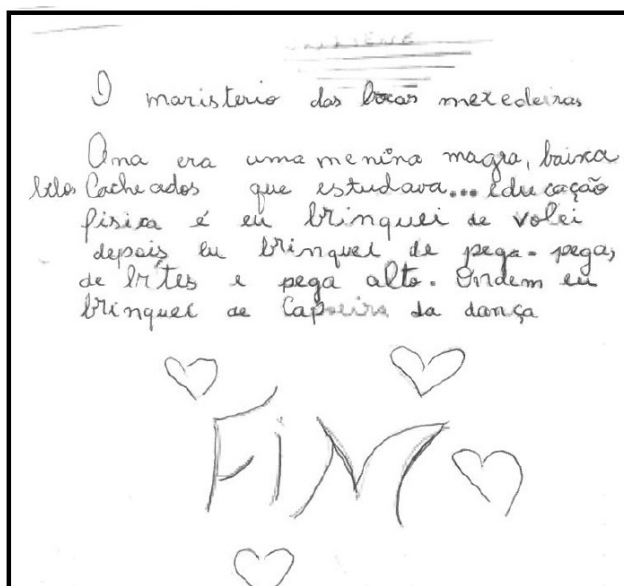 O maristerio das bocas mexedeiras
Ana era uma menina magra, baixa
belos Cacheados que estudava... Educação
fisica é eu brinquei de volei
depois eu brinquei de pega-pega,
de brítes e pega alto. Ondem eu
brinquei de Capoeira da dança
FIM